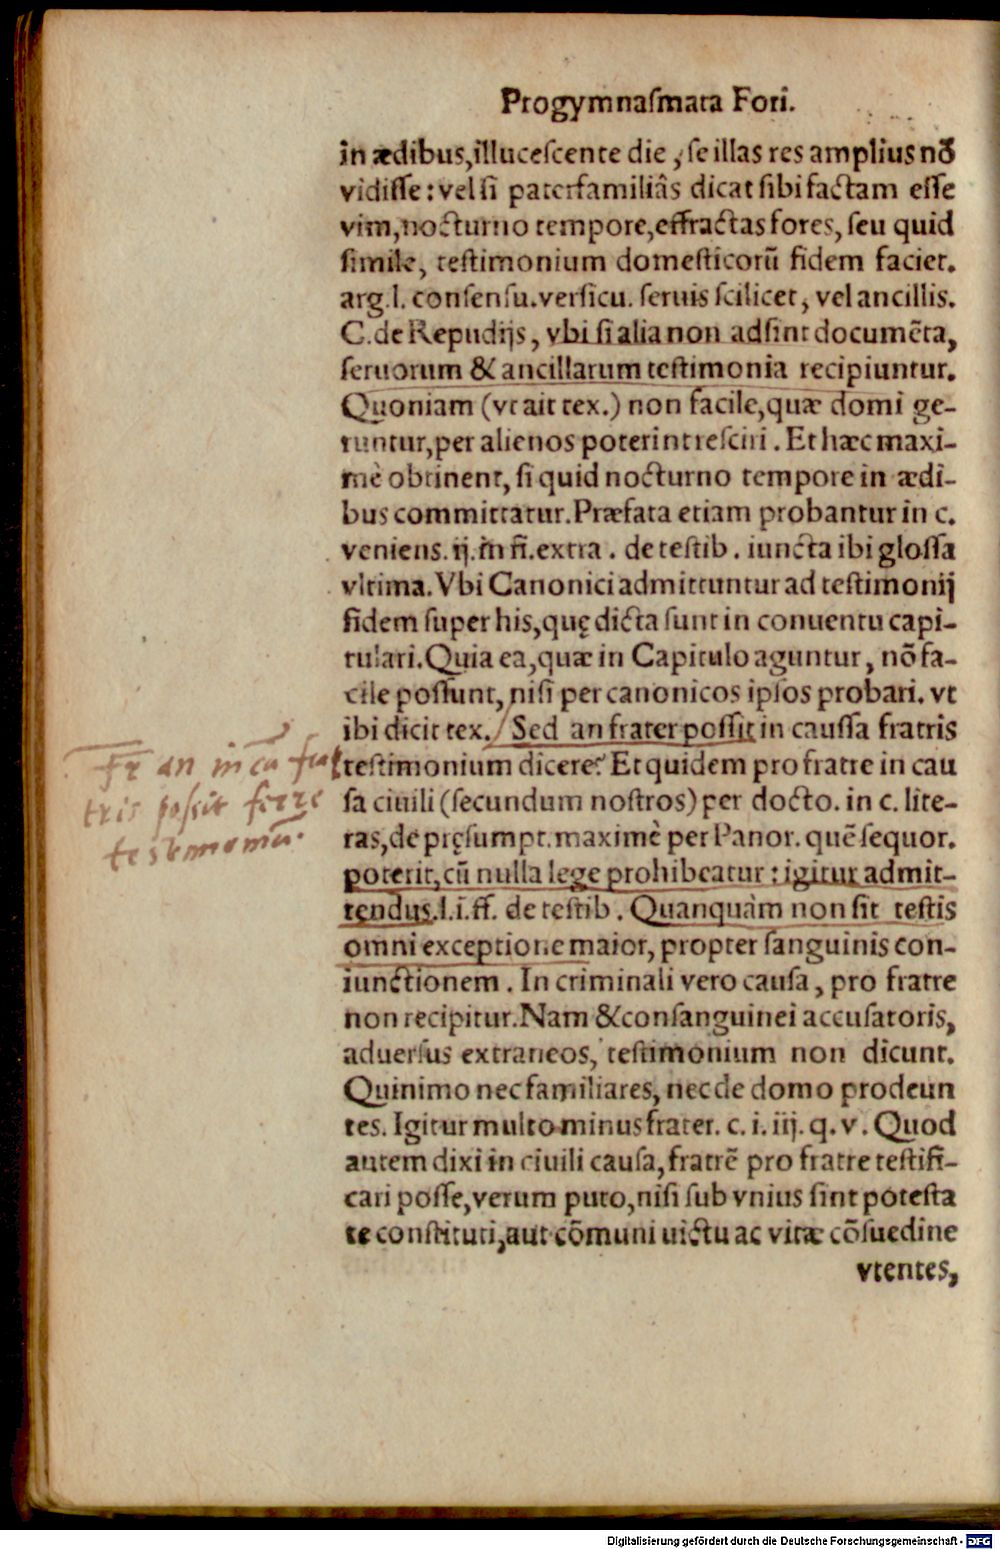 Progymnaſmata Fori.
in ædibus, illuceſcente die, ſe illas res amplius nõ
vidiſſe: vel ſi paterfamiliâs dicat ſibi factam eſſe
vim, nocturno tempore, effractas fores, ſeu quid
ſimile, teſtimonium domeſticorũ fidem faciet.
arg. l. conſenſu. verſicu. ſeruis ſcilicet, vel ancillis.
C. de Repudijs, vbi ſi alia non adſint documẽta,
ſeruorum & ancillarum teſtimonia recipiuntur.
Quoniam (vt ait tex.) non facile, quæ domi ge-
runtur, per alienos poterint reſciri. Et hæc maxi-
mè obtinent, ſi quid nocturno tempore in ædi-
bus committatur. Præfata etiam probantur in c.
veniens. ij. in fi. extra. de teſtib. iuncta ibi gloſſa
vltima. Vbi Canonici admittuntur ad teſtimonij
fidem ſuper his, quę dicta ſunt in conuentu capi-
tulari. Quia ea, quæ in Capitulo aguntur, nõ fa-
cile poſſunt, niſi per canonicos ipſos probari. vt
ibi dicit tex. Sed an frater poſſit in cauſſa fratris
teſtimonium dicere? Et quidem pro fratre in cau
ſa ciuili (ſecundum noſtros) per docto. in c. lite-
ras, de pręſumpt. maximè per Panor. quẽ ſequor.
poterit, cũ nulla lege prohibeatur: igitur admit-
tendus. l. i. ff. de teſtib. Quanquàm non ſit teſtis
omni exceptione maior, propter ſanguinis con-
iunctionem. In criminali vero cauſa, pro fratre
non recipitur. Nam & conſanguinei accuſatoris,
aduerſus extraneos, teſtimonium non dicunt.
Quinimo nec familiares, nec de domo prodeun
tes. Igitur multo minus frater. c. i. iij. q. v. Quod
autem dixi in ciuili cauſa, fratrẽ pro fratre teſtifi-
cari poſſe, verum puto, niſi ſub vnius ſint poteſta
te conſtituti, aut cõmuni uictu ac vitæ cõſuedine
vtentes,
Fr an in cã fra
tris poſsit ferre
testimoniũ.
Digitalisierung gefördert durch die Deutsche Forschungsgemeinschaft - DFG